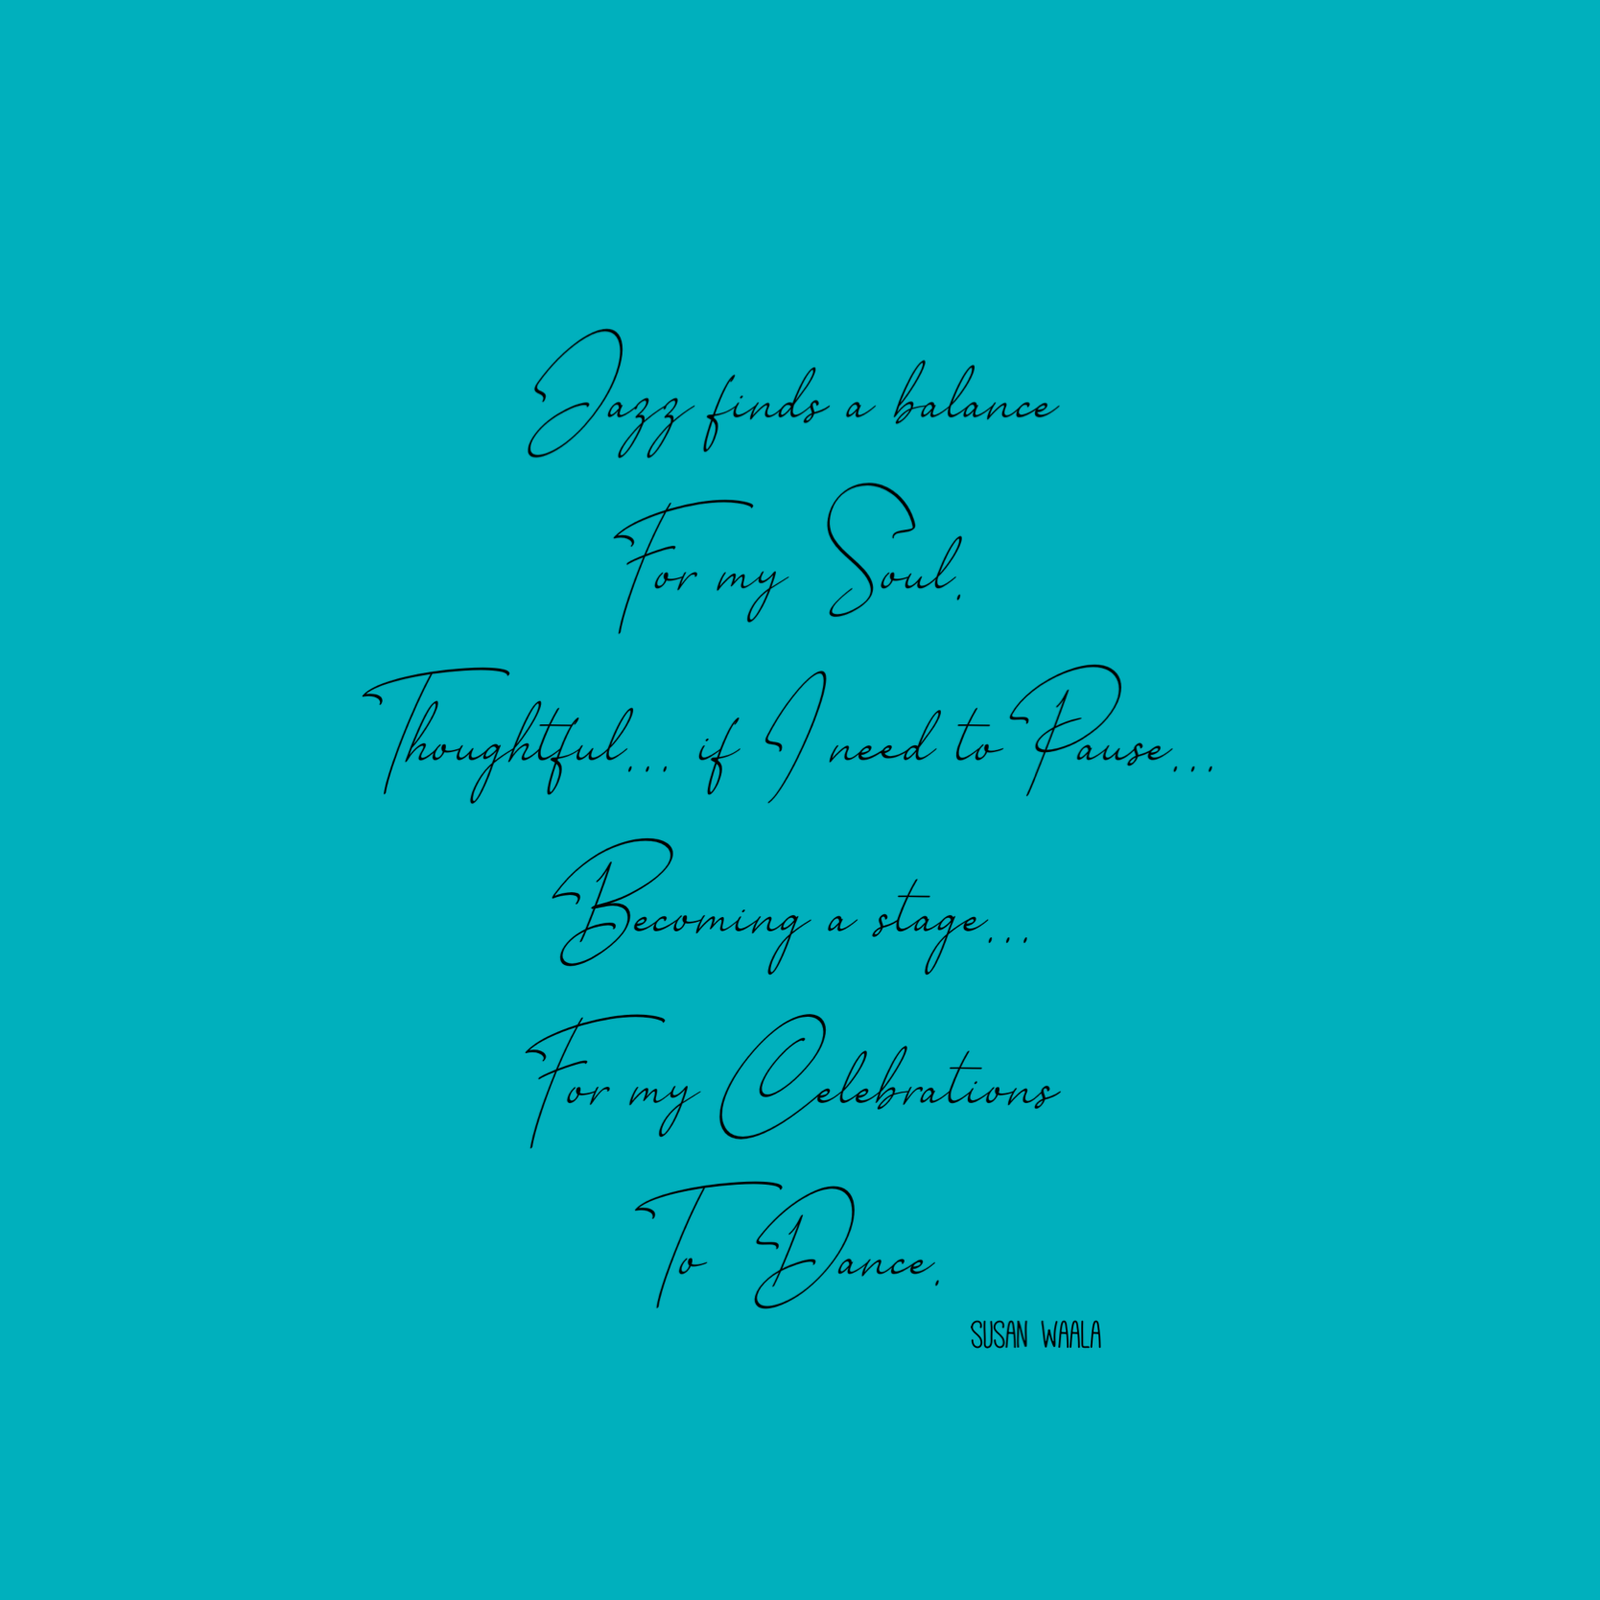 Jazz finds a balance
For my Soul.
Thoughtful... if I need to Pause...
Becoming a stage...
For my Celebrations
To Dance.
SUSAN WAALA